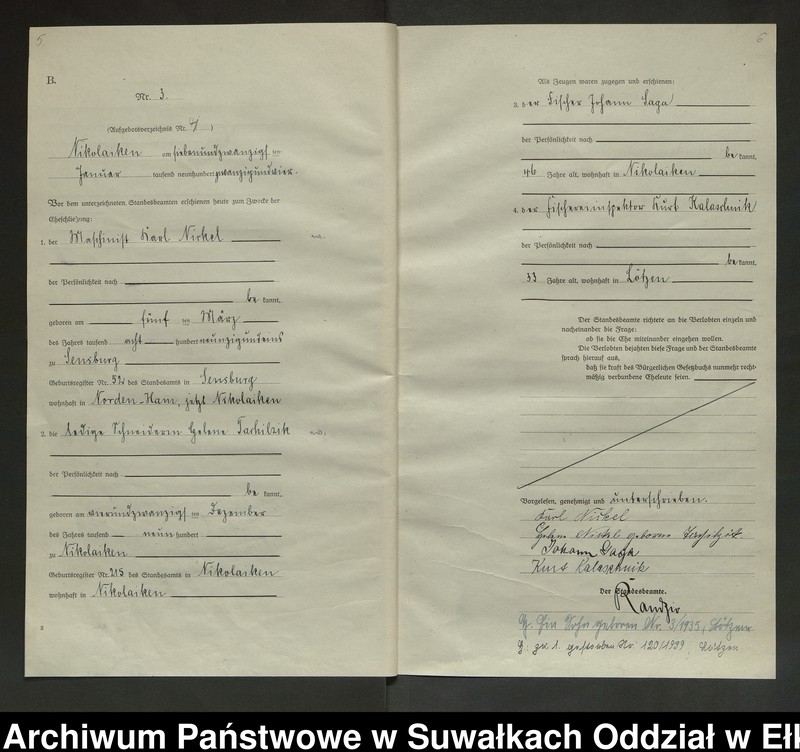 5
B.
Nr. 3.
(Aufgebotsverzeichnis Nr. 4)
Nikolaiken am siebenundzwanzigsten
Januar tausend neunhundert zwanzigundvier.
Vor dem unterzeichneten Standesbeamten erschienen heute zum Zwecke der
Eheschließung:
1. der Maschinist Karl Nickel
der Persönlichkeit nach
be kannt,
geboren am fünften März
des Jahres tausend acht hundert neunzigundeins
zu Sensburg
Geburtsregister Nr. 52 des Standesamts in Sensburg
wohnhaft in Norden-Ham, jetzt Nikolaiken
2. die ledige Schneiderin Helene
der Persönlichkeit nach
be kannt,
geboren am vierundzwanzigsten Dezember
des Jahres tausend neun hundert
zu Nikolaiken
Geburtsregister Nr. 215 des Standesamts in Nikolaiken
wohnhaft in Nikolaiken
6
Als Zeugen waren zugegen und erschienen:
3. der Fischer Johann Saga
der Persönlichkeit nach
be kannt,
46 Jahre alt, wohnhaft in Nikolaiken
4. der Fischereiinspektor Kurt Kalaschnik
der Persönlichkeit nach
be kannt,
33 Jahre alt, wohnhaft in Lötzen
Der Standesbeamte richtete an die Verlobten einzeln und
nacheinander die Frage:
ob sie die Ehe miteinander eingehen wollen.
Die Verlobten bejahten diese Frage und der Standesbeamte
sprach hierauf aus,
daß sie kraft des Bürgerlichen Gesetzbuchs nunmehr recht-
mäßig verbundene Eheleute seien.
Vorgelesen, genehmigt und unterschrieben.
Karl Nickel
Helene Nickel geborene
Johann Saga
Kurt Kalaschnik
Der Standesbeamte.
Randzio
G. Ein Sohn geboren Nr. 3/1935, Lötzen
G: zu 1. gestorben Nr. 120/1939, Lötzen
Archiwum Państwowe w Suwałkach Oddział w Eł